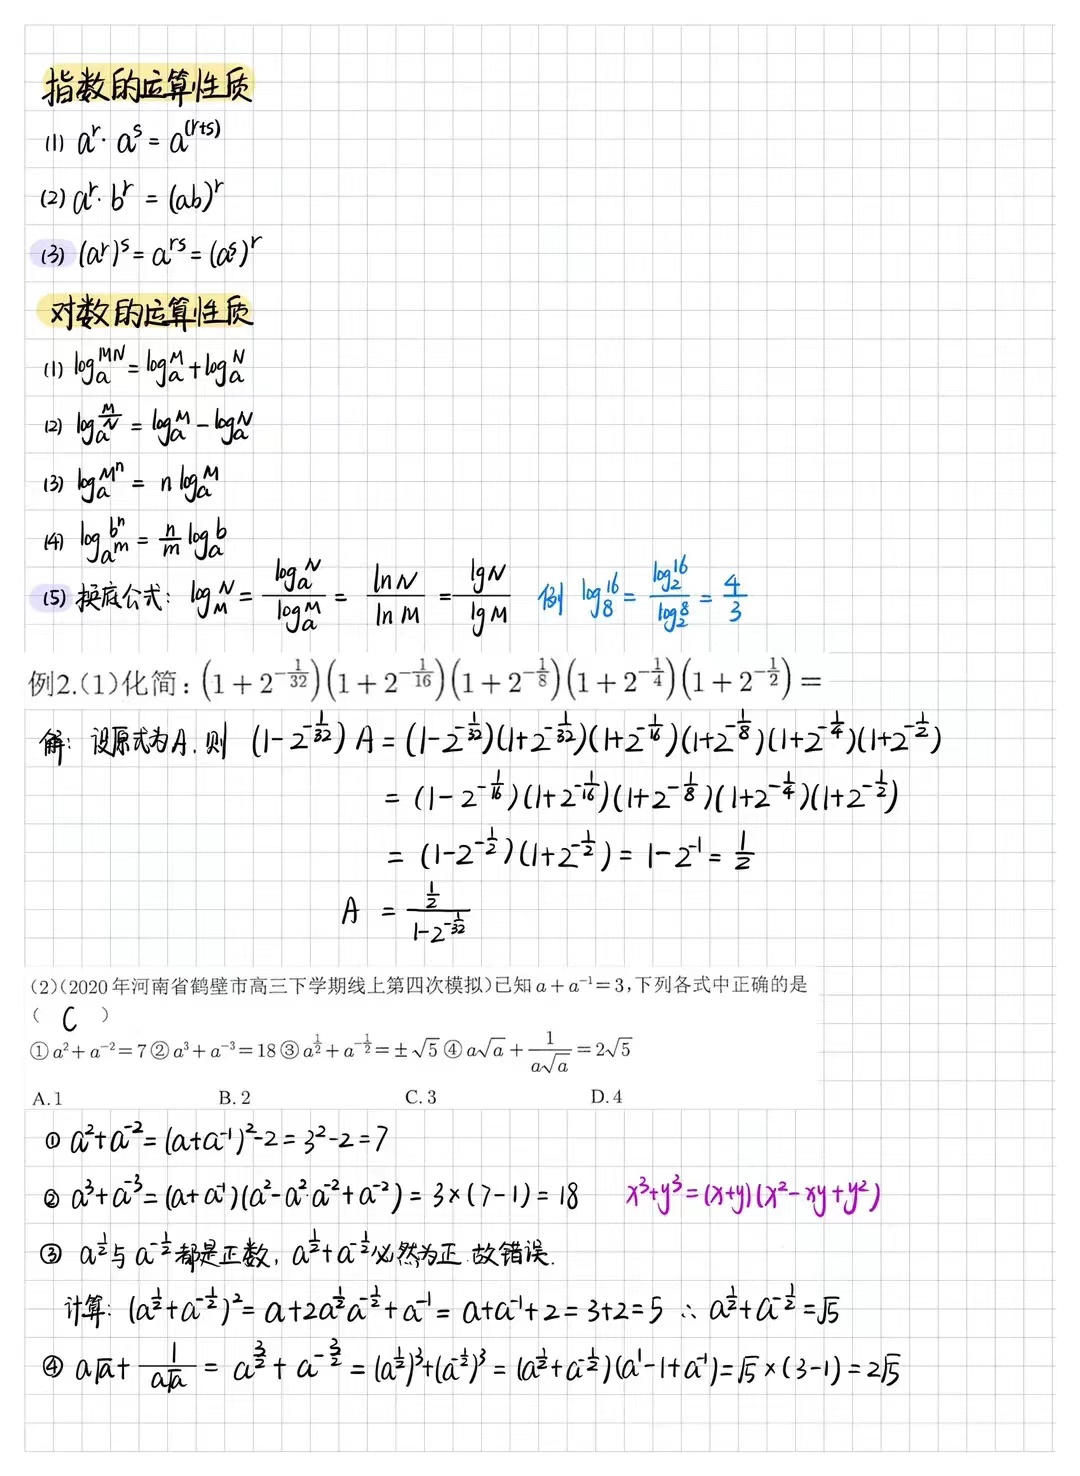 指数的运算性质
(1) aʳ· aˢ = a⁽ʳ⁺ˢ⁾
(2) aʳ· bʳ = (ab)ʳ
(3) (aʳ)ˢ = aʳˢ = (aˢ)ʳ
对数的运算性质
(1) logₐ^MN = logₐ^M + logₐ^N
(2) logₐ^(M/N) = logₐ^M − logₐ^N
(3) logₐ^(Mⁿ) = n logₐ^M
(4) log_(aᵐ)^(bⁿ) = n/m logₐ^b
(5) 换底公式: log_M^N = logₐ^N / logₐ^M = ln N / ln M = lg N / lg M 例 log₈^16 = log₂^16 / log₂^8 = 4/3
例2.(1)化简:(1+2^(-1/32))(1+2^(-1/16))(1+2^(-1/8))(1+2^(-1/4))(1+2^(-1/2))=
解: 设原式为A, 则 (1-2^(-1/32)) A = (1-2^(-1/32))(1+2^(-1/32))(1+2^(-1/16))(1+2^(-1/8))(1+2^(-1/4))(1+2^(-1/2))
= (1-2^(-1/16))(1+2^(-1/16))(1+2^(-1/8))(1+2^(-1/4))(1+2^(-1/2))
= (1-2^(-1/2))(1+2^(-1/2)) = 1-2⁻¹ = 1/2
A = (1/2)/(1-2^(-1/32))
(2)(2020年河南省鹤壁市高三下学期线上第四次模拟)已知a+a⁻¹=3,下列各式中正确的是
( C )
①a²+a⁻²=7②a³+a⁻³=18③a^(1/2)+a^(-1/2)=±√5④a√a+1/(a√a)=2√5
A.1 B.2 C.3 D.4
① a²+a⁻²=(a+a⁻¹)²-2=3²-2=7
② a³+a⁻³=(a+a⁻¹)(a²-a²·a⁻²+a⁻²)=3×(7-1)=18 x³+y³=(x+y)(x²-xy+y²)
③ a^(1/2)与a^(-1/2)都是正数, a^(1/2)+a^(-1/2)必然为正.故错误.
计算: (a^(1/2)+a^(-1/2))²=a+2a^(1/2)a^(-1/2)+a⁻¹=a+a⁻¹+2=3+2=5 ∴ a^(1/2)+a^(-1/2)=√5
④ a√a+1/(a√a)=a^(3/2)+a^(-3/2)=(a^(1/2))³+(a^(-1/2))³=(a^(1/2)+a^(-1/2))(a¹-1+a⁻¹)=√5×(3-1)=2√5